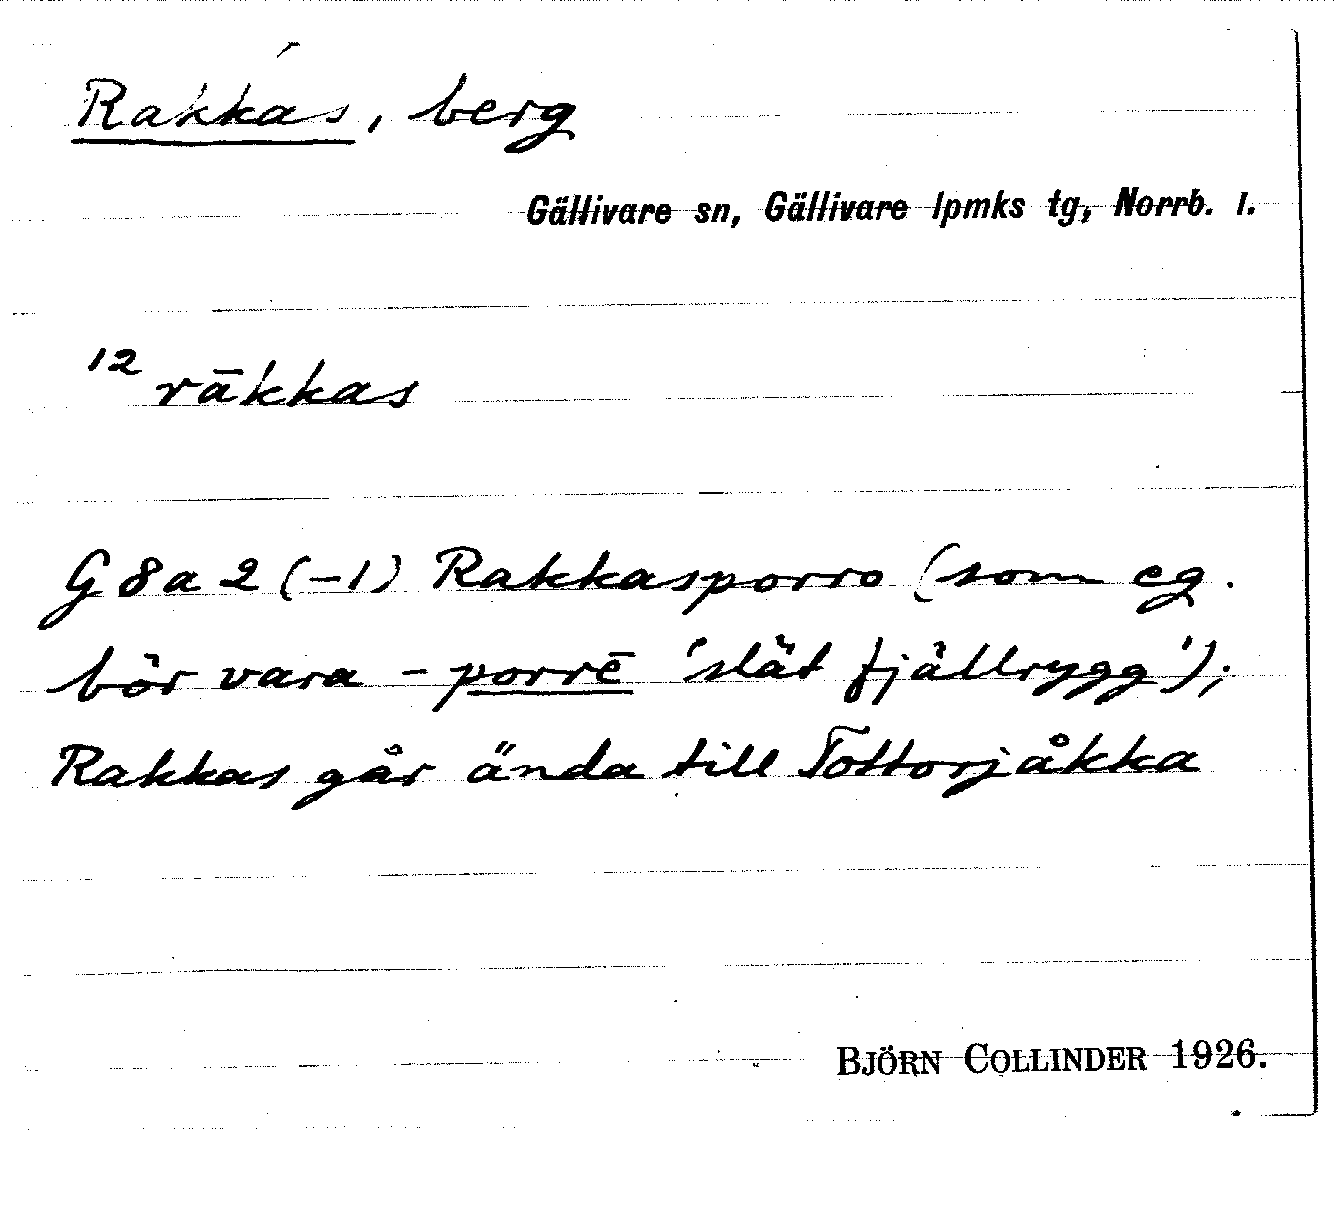 Rakkas, berg
Gällivare sn, Gällivare lpmks tg, Norrb. l.
12 rākkas
G 8 a 2 (-1) Rakkasporro (som eg.
bör vara -porrē 'slät fjällrygg');
Rakkas går ända till Tottorjåkka
BJÖRN COLLINDER 1926.